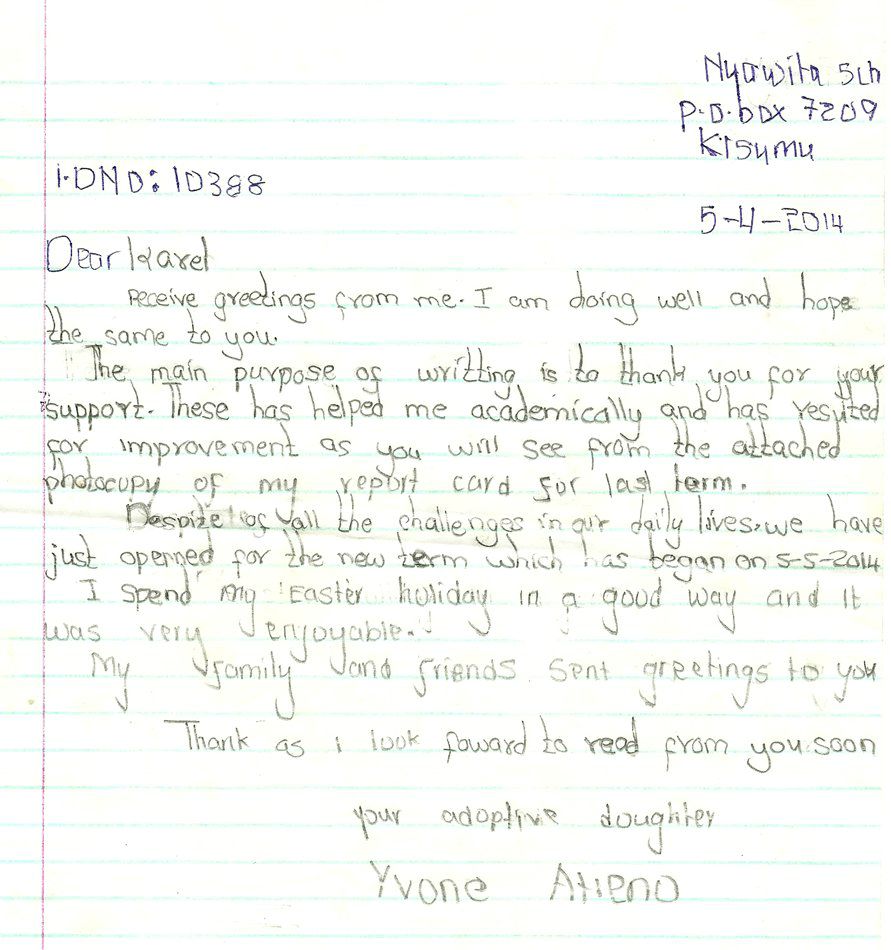 Nyawita Sch
P.O.box 7209
Kisumu
I.DNO: 10388
5-4-2014
Dear Karel
Receive greetings from me. I am doing well and hope
the same to you.
The main purpose of writting is to thank you for your
support. These has helped me academically and has resulted
for improvement as you will see from the attached
photocopy of my report card for last term.
Despite of all the challenges in our daily lives, we have
just openned for the new term which has began on 5-5-2014
I spend my Easter holiday in a good way and it
was very enjoyable.
My family and friends sent greetings to you
Thank as i look foward to read from you soon
your adoptive doughter
Yvone Atieno